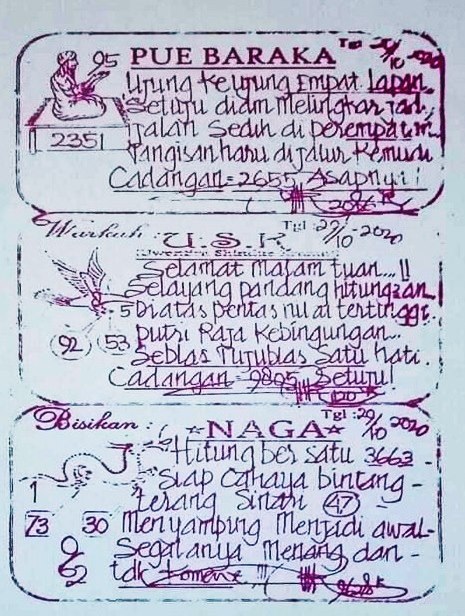 PUE BARAKA
Tgl /10 2020
95
Ujung Keujung Empat Lapan
Seturu diam melingkar jadi
2351
Jalan Sedih di perempatan
Tangisan haru di jalur Kemudi
Cadangan = 2655 Asapnya !
Warkah : U.S.K
Tgl 29/10 - 2020
Selamat malam tuan....!!
Selayang pandang hitungzan..
5 Diatas pentas nilai tertinggi.
92 53 putri Raja Kebingungan...
Seblas Tujublas Satu hati.
Cadangan = 9805 Seturu!
Bisikan : NAGA
Tgl :29/10 2020
Hitung ber satu 3663 -
Siap Cahaya bintang -
1
terang Sinari 47 -
73 30 Menyamping Menjadi awal-
Segalanya Menang dan -
62 tdk !!!